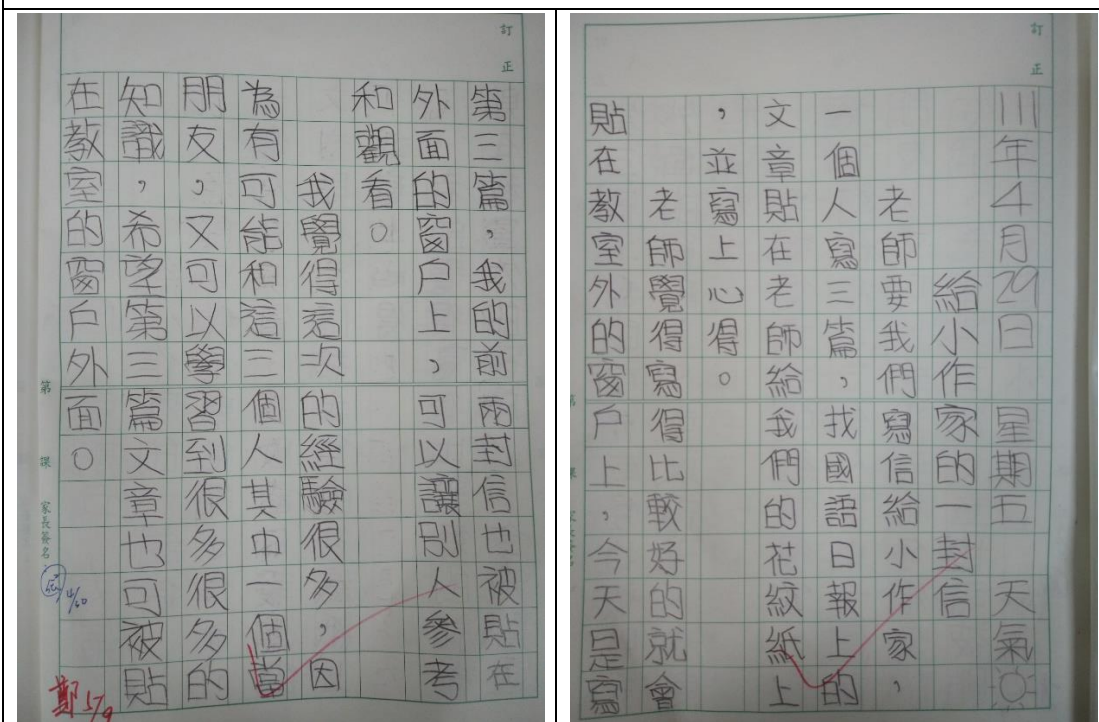 訂正
111年4月29日 星期五 天氣
給小作家的一封信
老師要我們寫信給小作家，
一個人寫三篇，找國語日報上的
文章貼在老師給我們的花紋紙上
，並寫上心得。
老師覺得寫得比較好的就會
貼在教室外的窗戶上，今天是寫
訂正
第三篇，我的前兩封信也被貼在
外面的窗戶上，可以讓別人參考
和觀看。
我覺得這次的經驗很多，因
為有可能和這三個人其中一個當
朋友，又可以學習到很多很多的
知識，希望第三篇文章也可被貼
在教室的窗戶外面。
第 課 家長簽名
鄭 5/9